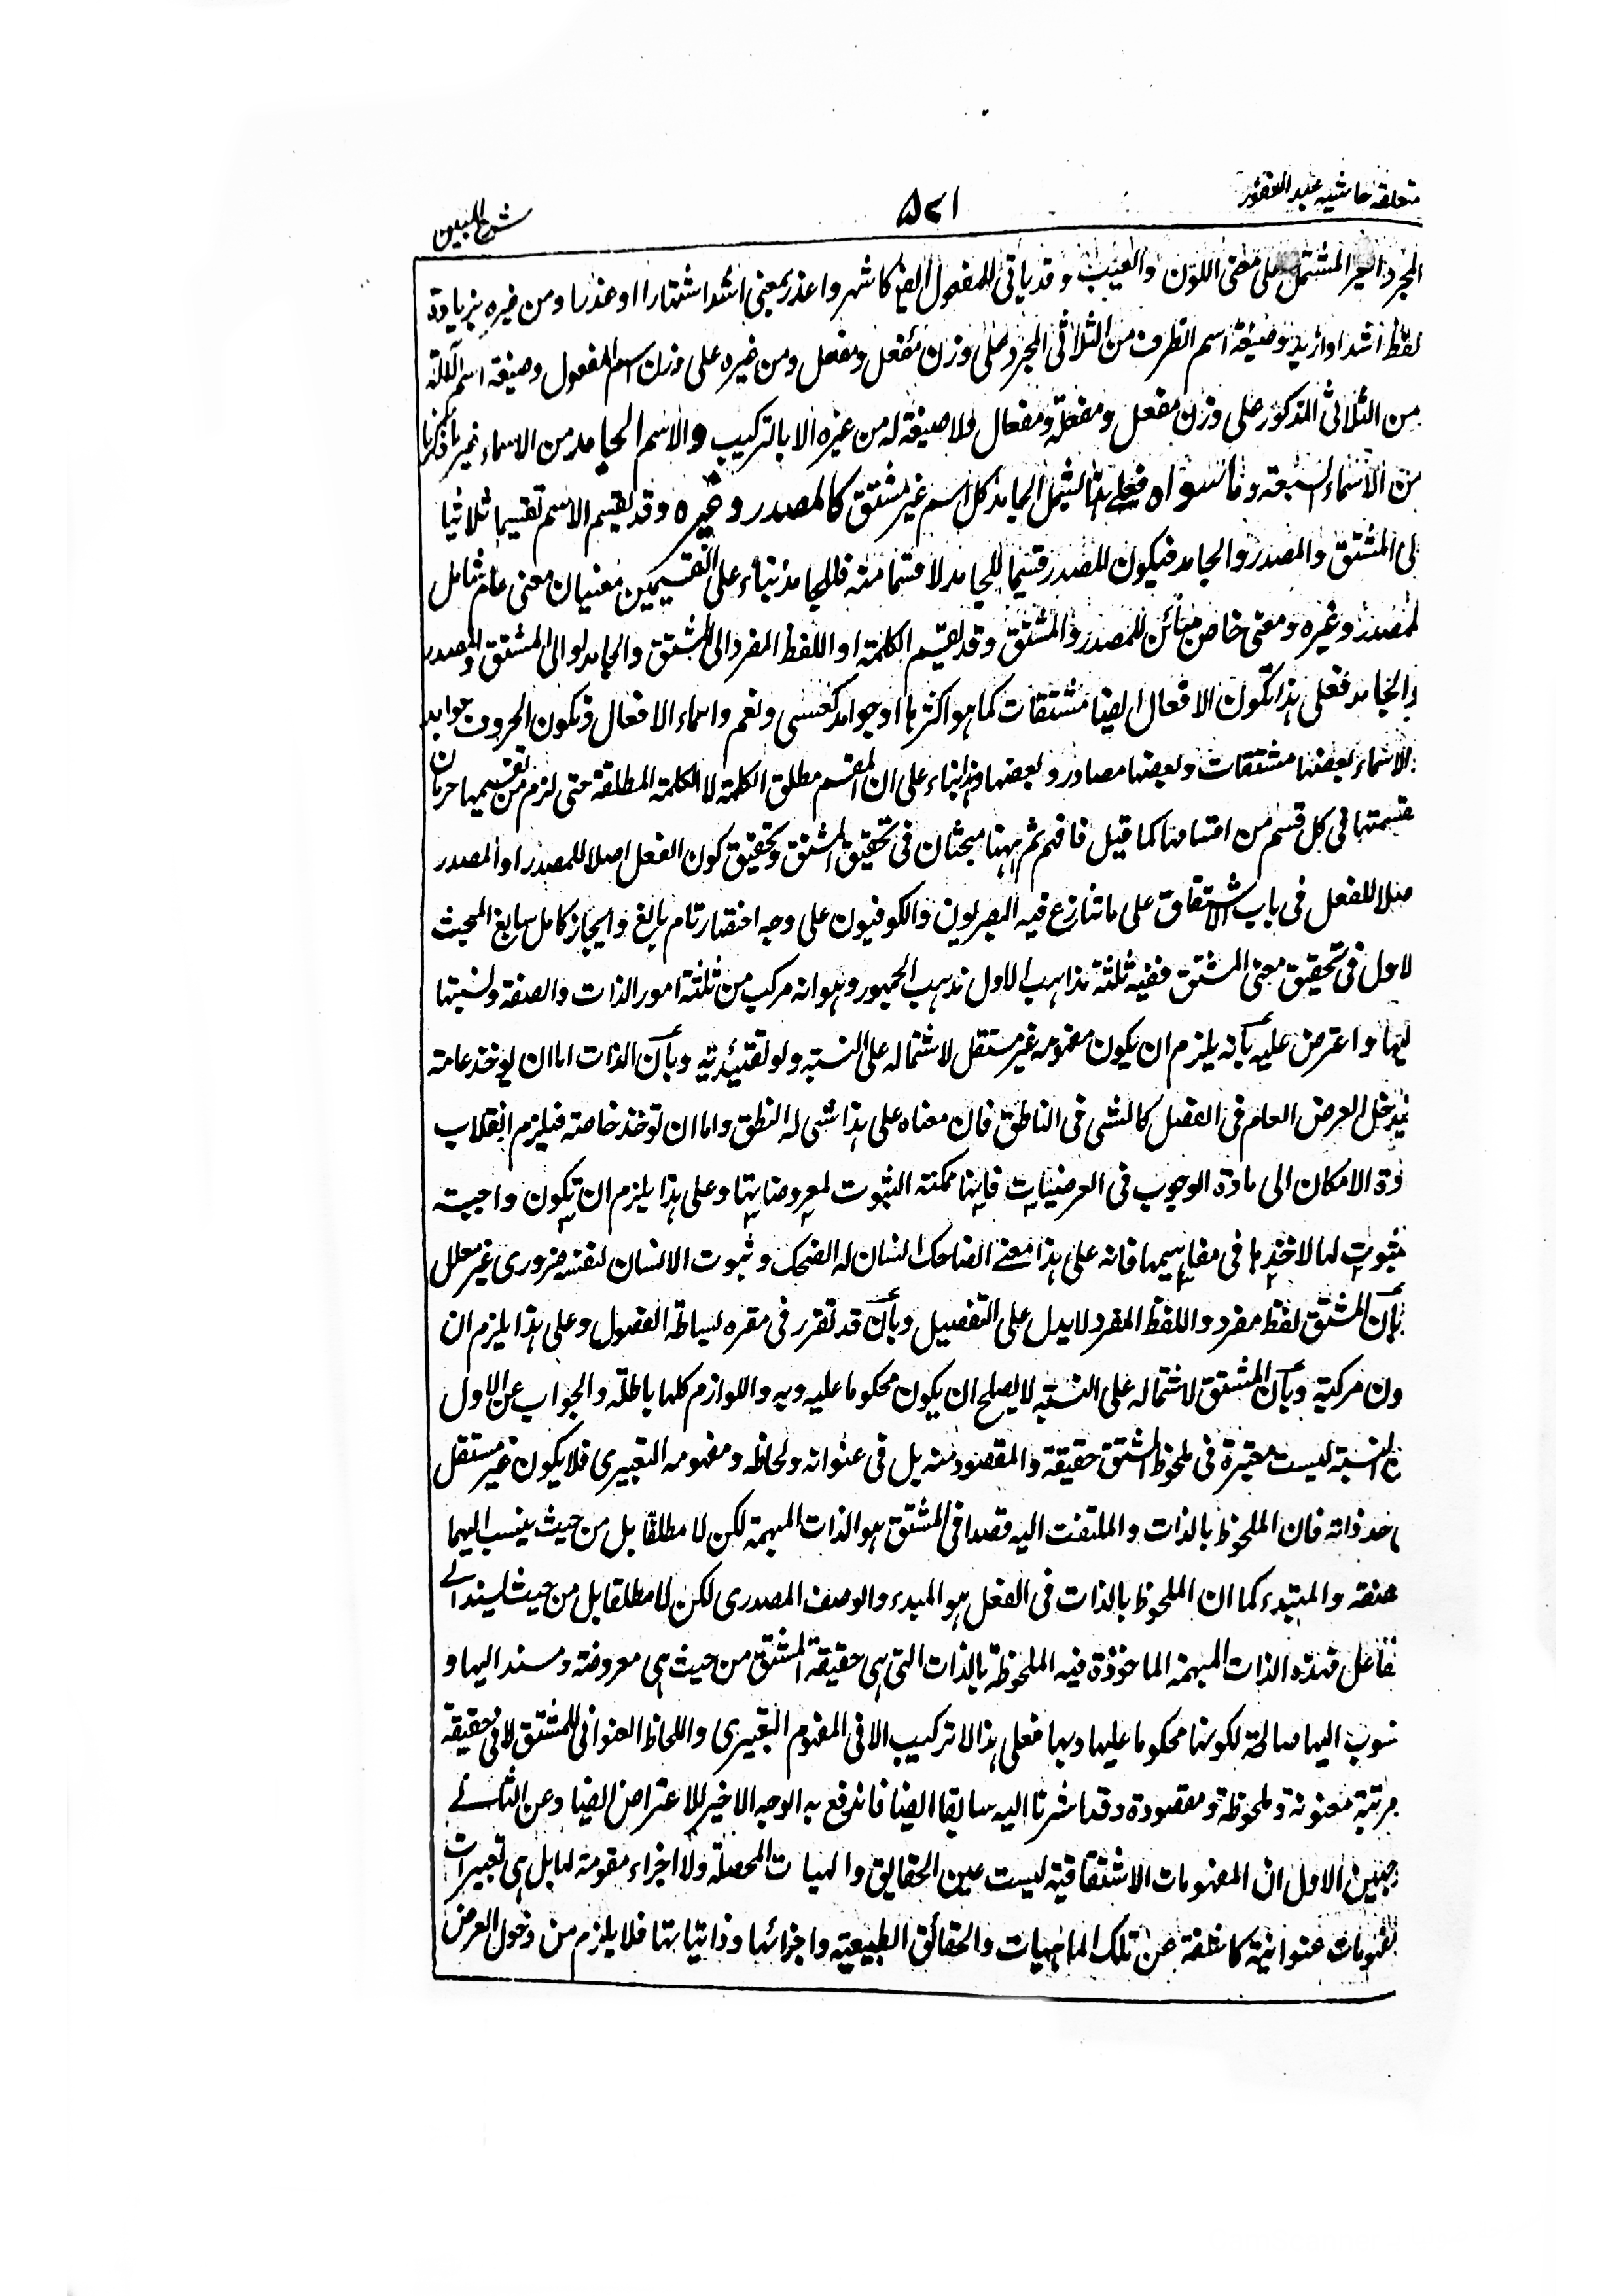 متعلقة حاشيه عبد الغفور
۵۲۱
شرح المبين
المجرد الغير المشتمل على معنى اللون والعيب وقد ياتى للمفعول ايضا كاشهر واعذر بمعنى اشد اشتهارا او عذرا ومن غيره بزيادة
لفظ اشد او ازيد وصيغة اسم الظرف من الثلاثى المجرد على وزن مفعل ومفعل ومن غيره على وزن اسم المفعول وصيغة اسم الآلة
من الثلاثى المذكور على وزن مفعل ومفعلة ومفعال ولا صيغة له من غيره الا بالتركيب والاسم الجامد من الاسماء غير ما ذكرنا
من الاسماء السبعة وما سواه فعلى هذا يشمل الجامد كل اسم غير مشتق كالمصدر وغيره وقد يقسم الاسم تقسيما ثلاثيا
لى المشتق والمصدر والجامد فيكون المصدر قسيما للجامد لا قسما منه فللجامد بناء على التقسيمين معنيان معنى عام شامل
لمصدر وغيره ومعنى خاص مبائن للمصدر والمشتق وقد يقسم الكلمة او اللفظ المفرد الى المشتق والجامد او الى المشتق والمصدر
والجامد فعلى هذا تكون الافعال ايضا مشتقات كما هو اكثرها او جوامد كعسى ونعم واسماء الافعال وتكون الحروف جوامد
الاسماء بعضها مشتقات وبعضها مصادر وبعضها وهذا بناء على ان المقسم مطلق الكلمة لا الكلمة المطلقة حتى لزم من تقسيمها جريان
قسمتها فى كل قسم من اقسامها كما قيل فافهم ثم ههنا مبحثان فى تحقيق المشتق وتحقيق كون الفعل اصلا للمصدر او المصدر
صلا للفعل فى باب الاشتقاق على ما تنازع فيه البصريون والكوفيون على وجه اختصار تام بالغ وايجاز كامل سابغ المبحث
لاول فى تحقيق معنى المشتق ففيه ثلثة مذاهب الاول مذهب الجمهور وهو انه مركب من ثلثة امور الذات والصفة ونسبتها
ليها واعترض عليه بأنه يلزم ان يكون مفهومه غير مستقل لاشتماله على النسبة ولو تقييدية وبأن الذات اما ان يوخذ عامة
فيدخل العرض العام فى الفصل كالشى فى الناطق فان معناه على هذا شى له النطق واما ان توخذ خاصة فيلزم انقلاب
دة الامكان الى مادة الوجوب فى العرضيات فانها ممكنة الثبوت لمعروضاتها وعلى هذا يلزم ان تكون واجبة
ثبوت لها لاخذها فى مفاهيمها فانه على هذا معنى الضاحك انسان له الضحك وثبوت الانسان لنفسه ضرورى غير معلل
بأن المشتق لفظ مفرد واللفظ المفرد لا يدل على التفصيل وبأن قد تقرر فى مقره بساطة الفصول وعلى هذا يلزم ان
ون مركبة وبأن المشتق لاشتماله على النسبة لا يصلح ان يكون محكوما عليه وبه واللوازم كلها باطلة والجواب عن الاول
ن النسبة ليست معتبرة فى ملحوظ المشتق حقيقة والمقصود منه بل فى عنوانه ولحاظه ومفهومه التعبيرى فلا يكون غير مستقل
حد ذاته فان الملحوظ بالذات والملتفت اليه قصدا فى المشتق هو الذات المبهمة لكن لا مطلقا بل من حيث ينسب اليها
صفة والمبتدء كما ان الملحوظ بالذات فى الفعل هو المبدء والوصف المصدرى لكن لا مطلقا بل من حيث يسند الى
لفاعل فهذه الذات المبهمة الماخوذة فيه الملحوظة بالذات التى هى حقيقة المشتق من حيث هى معروضة ومسند اليها و
نسوب اليها صالحة لكونها محكوما عليها وبها فعلى هذا لا تركيب الا فى المفهوم التعبيرى واللحاظ العنوانى للمشتق لا فى حقيقة
مرتبة معنونة وملحوظة ومقصودة وقد اشرنا اليه سابقا ايضا فاندفع به الوجه الاخير للاعتراض ايضا وعن الثانى
جهين الاول ان المفهومات الاشتقاقية ليست عين الحقايق والهيات المحصلة ولا اجزاء مقومة لها بل هى تعبيرات
مفهومات عنوانية كاشفة عن تلك الماهيات والحقائق الطبيعية واجزائها وذاتياتها فلا يلزم من دخول العرض